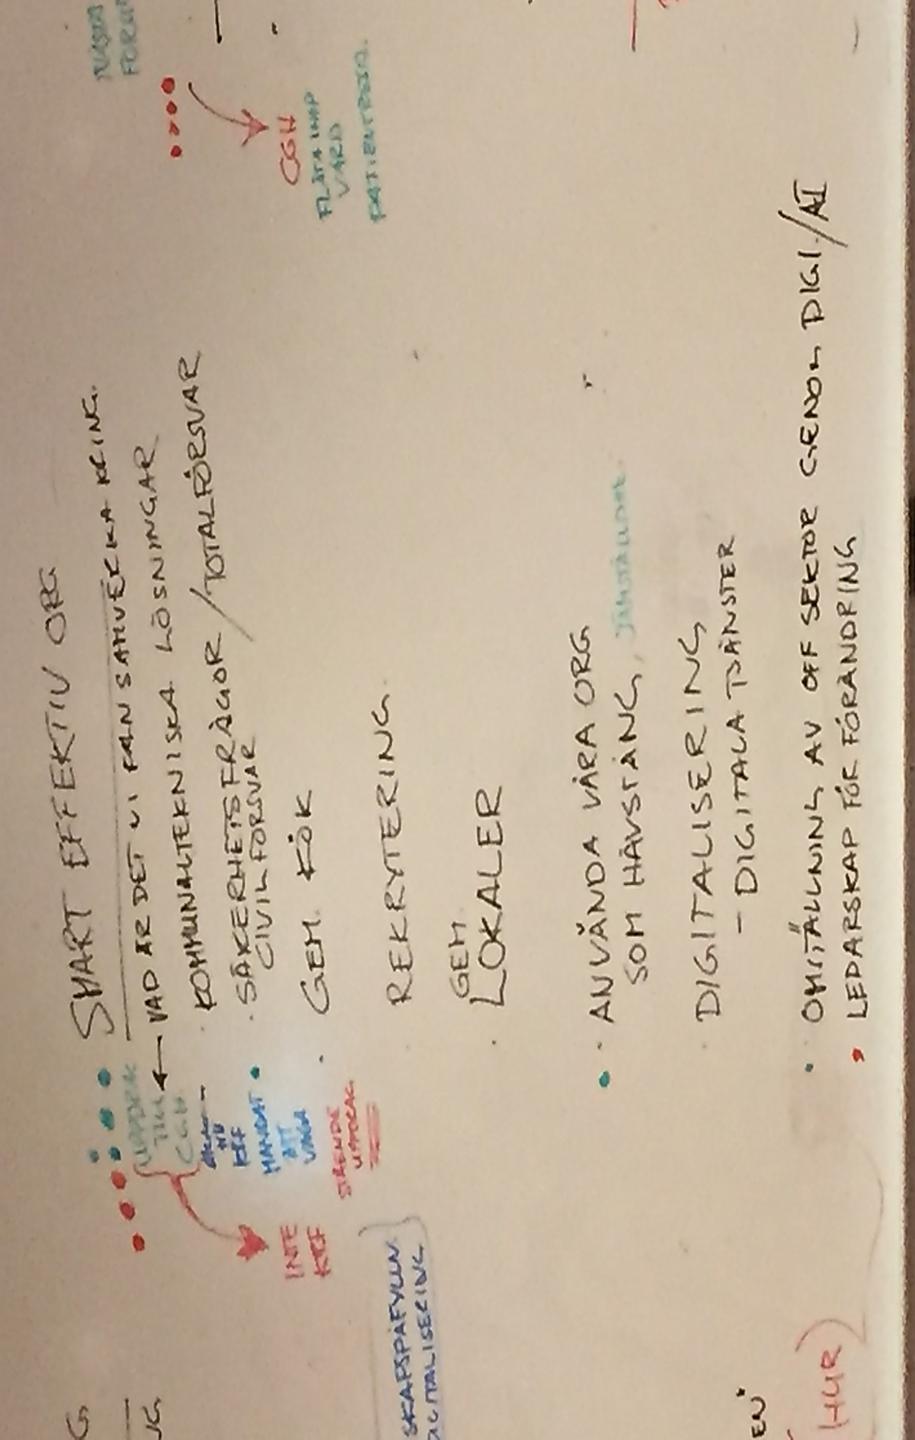 SMART EFFEKTIV ORG
VAD ÄR DET VI KAN SAMVERKA KRING.
· KOMMUNALTEKNISKA LÖSNINGAR
· SÄKERHETSFRÅGOR/TOTALFÖRSVAR
CIVILFÖRSVAR
· GEM. KÖK
REKRYTERING
GEM
· LOKALER
· ANVÄNDA VÅRA ORG
SOM HÄVSTÅNG, JÄMSTÄLLDHET
· DIGITALISERING
- DIGITALA TJÄNSTER
· OMSTÄLLNING AV OFF SEKTOR GENOM DIGI./AI
· LEDARSKAP FÖR FÖRÄNDRING
UPPDRAG
TILL
CGH
NU
KSF
MANDAT
ATT
VÅGA
STÅENDE
UPPDRAG
INTE
KSF
SKAPSPÅFYLLN.
DIGITALISERING
CGH
VÅRD
G
NG
EN
(HUR)